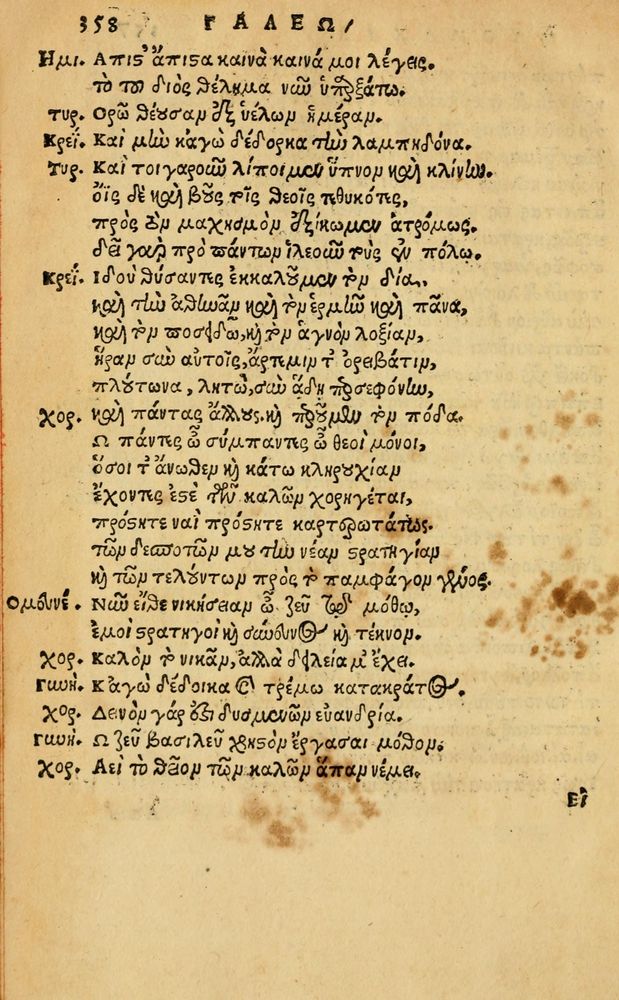 358 ΓΑΛΕΩ/
Ημι. Απιϛ' ἄπιϛα καινὰ καινά μοι λέγεις.
τὸ τοῦ διὸς θέλημα νῶν ὑπαρξάτω.
Τυρ. Ορῶ θέουσαν ἐξ ὑέλων ἡμέραν.
Κρεΐ. Καὶ μὴν κἀγὼ δέδορκα τὴν λαμπηδόνα.
Τυρ. Καὶ τοιγαροῦν λίποιμεν ὕπνον καὶ κλίνην.
ὄϊς δὲ καὶ βοῦς τοῖς θεοῖς τεθυκότες,
πρὸς τὸν μαχησμὸν ἐξίκωμεν ἀτρόμως.
δεῖ γὰρ πρὸ πάντων ἱλεοῦν τοὺς ἐν πόλῳ.
Κρεΐ. Ιδοὺ θύσαντες ἐκκαλοῦμεν τὸν δία,
καὶ τὴν ἀθηνᾶν καὶ τὸν ἑρμῆν καὶ πᾶνα,
καὶ τὸν ποσειδῶ, καὶ τὸν ἁγνὸν λοξίαν,
ἥραν σὺν αὐτοῖς, ἄρτεμιν τὴν ὀρειβάτιν,
πλούτωνα, λητὼ, σὺν ἅδῃ περσεφόνην,
Χορ. καὶ πάντας ἄλλους, καὶ προῦμεν τὸν πόδα.
Ω πάντες ὦ σύμπαντες ὦ θεοὶ μόνοι,
ὅσοι τὴν ἄνωθεν καὶ κάτω κληρουχίαν
ἔχοντες ἐϛὲ τῶν καλῶν χορηγέται,
πρόσητε ναὶ πρόσητε καρτερωτάτως.
τῶν δεσποτῶν μου τὴν νέαν ϛρατηγίαν
καὶ τῶν τελούντων πρὸς τὸ παμφάγον γένος.
Ομευνέ. Νῶν εἴθε νικήσειαν ὦ ζεῦ τῷ μόθῳ,
ἐμοὶ ϛρατηγοὶ καὶ σύνευνος καὶ τέκνον.
Χορ. Καλὸν τὸ νικᾶν, ἀλλὰ δειλεία μ' ἔχει.
Γυνή. Κἀγὼ δέδοικα καὶ τρέμω κατακράτος.
Χορ. Δεινὸν γάρ ἐϛι δυσμενῶν εὐανδρία.
Γυνή. Ω ζεῦ βασιλεῦ χρηϛὸν ἔργασαι μόθον.
Χορ. Αεὶ τὸ θεῖον τῶν καλῶν ἅπαν νέμει.
Εἴ